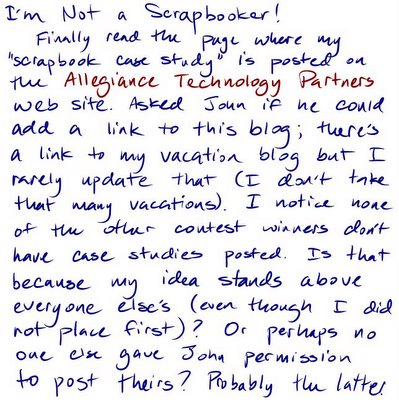 I'm Not a Scrapbooker!
Finally read the page where my
"scrapbook case study" is posted on
the Allegiance Technology Partners
web site. Asked John if he could
add a link to this blog; there's
a link to my vacation blog but I
rarely update that (I don't take
that many vacations). I notice none
of the other contest winners don't
have case studies posted. Is that
because my idea stands above
everyone else's (even though I did
not place first)? Or perhaps no
one else gave John permission
to post theirs? Probably the latter.